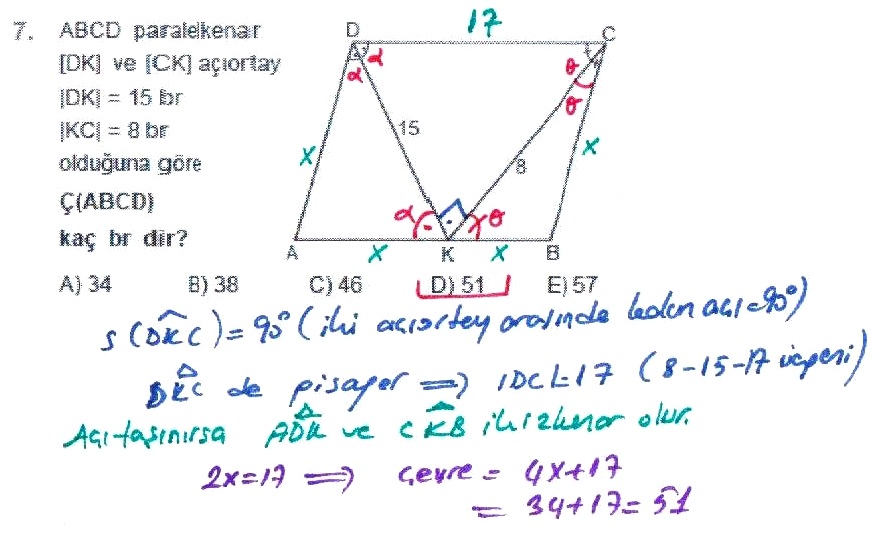 7. ABCD paralelkenar
[DK] ve [CK] açıortay
|DK| = 15 br
|KC| = 8 br
olduğuna göre
Ç(ABCD)
kaç br dir?
17
D
C
α α
θ
θ
15
8
x
x
α
θ
A
x
K
x
B
A) 34 B) 38 C) 46 D) 51 E) 57
s(DKC) = 90° (iki açıortay arasında kalan açı = 90°)
DKC de pisagor ⟹ |DC| = 17 (8-15-17 üçgeni)
Açı taşınırsa ADK ve CKB ikizkenar olur.
2x = 17 ⟹ Çevre = 4x + 17
= 34 + 17 = 51